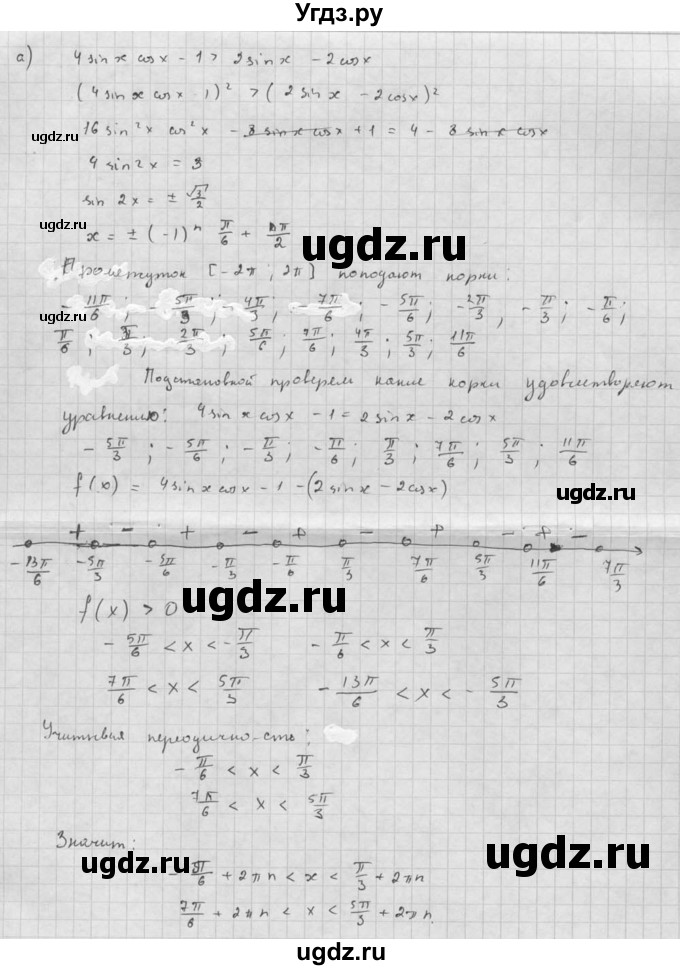 Угдз.ру
а) 4 sin x cos x - 1 > 2 sin x - 2 cos x
(4 sin x cos x - 1)² > (2 sin x - 2 cos x)²
ugdz.ru
16 sin² x cos² x - 8 sin x cos x + 1 = 4 - 8 sin x cos x
4 sin 2x = 3
sin 2x = ± √3/2
ugdz.ru
x = ± (-1)ⁿ π/6 + πn/2
ugdz.ru
Прометуток [-2π; 2π] поподают корни:
- 11π/6; - 5π/3; - 4π/3; - 7π/6; - 5π/6; - 2π/3; - π/3; - π/6;
ugdz.ru
π/6; π/3; 2π/3; 5π/6; 7π/6; 4π/3; 5π/3; 11π/6
Подстановкой проверем какие корки удовлетворяют
уравнению: 4 sin x cos x - 1 = 2 sin x - 2 cos x
- 5π/3; - 5π/6; - π/3; - π/6; π/3; 7π/6; 5π/3; 11π/6
ugdz.ru
f(x) = 4 sin x cos x - 1 - (2 sin x - 2 cos x)
+ - + - + - + - + -
- 13π/6 - 5π/3 - 5π/6 - π/3 - π/6 π/3 7π/6 5π/3 11π/6 7π/3
ugdz.ru
f(x) > 0
- 5π/6 < x < - π/3 - π/6 < x < π/3
7π/6 < x < 5π/3 - 13π/6 < x < - 5π/3
Учитывая переодично-сть:
- π/6 < x < π/3
7π/6 < x < 5π/3
ugdz.ru
Значит:
ugdz.ru
+ 2πn < x < π/3 + 2πn
7π/6 + 2πn < x < 5π/3 + 2πn.
ugdz.ru
ugdz.ru